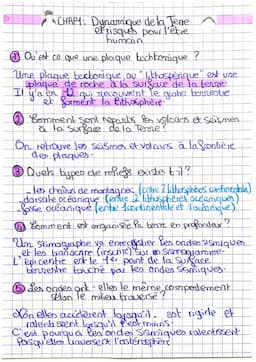 CHAP1: Dynamique de la Terre
et risques pour l'être
humain
① Qu'est ce que une plaque techtonique ?
Une plaque tectonique ou "lithosphérique" est une
plaque de roche à la surface de la terre.
Il y'a 12 qui recouvrent le globe terrestre
et forment la lithosphère.
② Comment sont repartis les volcans et seismes
à la surface de la Terre ?
On retrouve les séismes et volcans à la frontière
des plaques.
③ Quels types de reliefs existe t-il ?
- les chaînes de montagnes (entre 2 lithosphères continentale)
- dorsale océanique (entre 2 lithosphères océaniques)
- fosse océanique (entre 1 continentale et 1 océanique)
④ Comment est organisée la terre en profondeur ?
Un sismographe va enregistrer les ondes sismiques
et les transcrire (inscrit) sur un sismogramme.
L'épicentre est le 1er point de la surface
terrestre touché par les ondes sismiques.
⑤ Les ondes ont-elles le même comportement
selon le milieu traversé ?
Non elles accélèrent lorsqu'il est rigide et
ralentissent lorsqu'il est moins
C'est pourquoi les ondes sismiques ralentissent
lorsqu'elles traversent l'asthénosphère